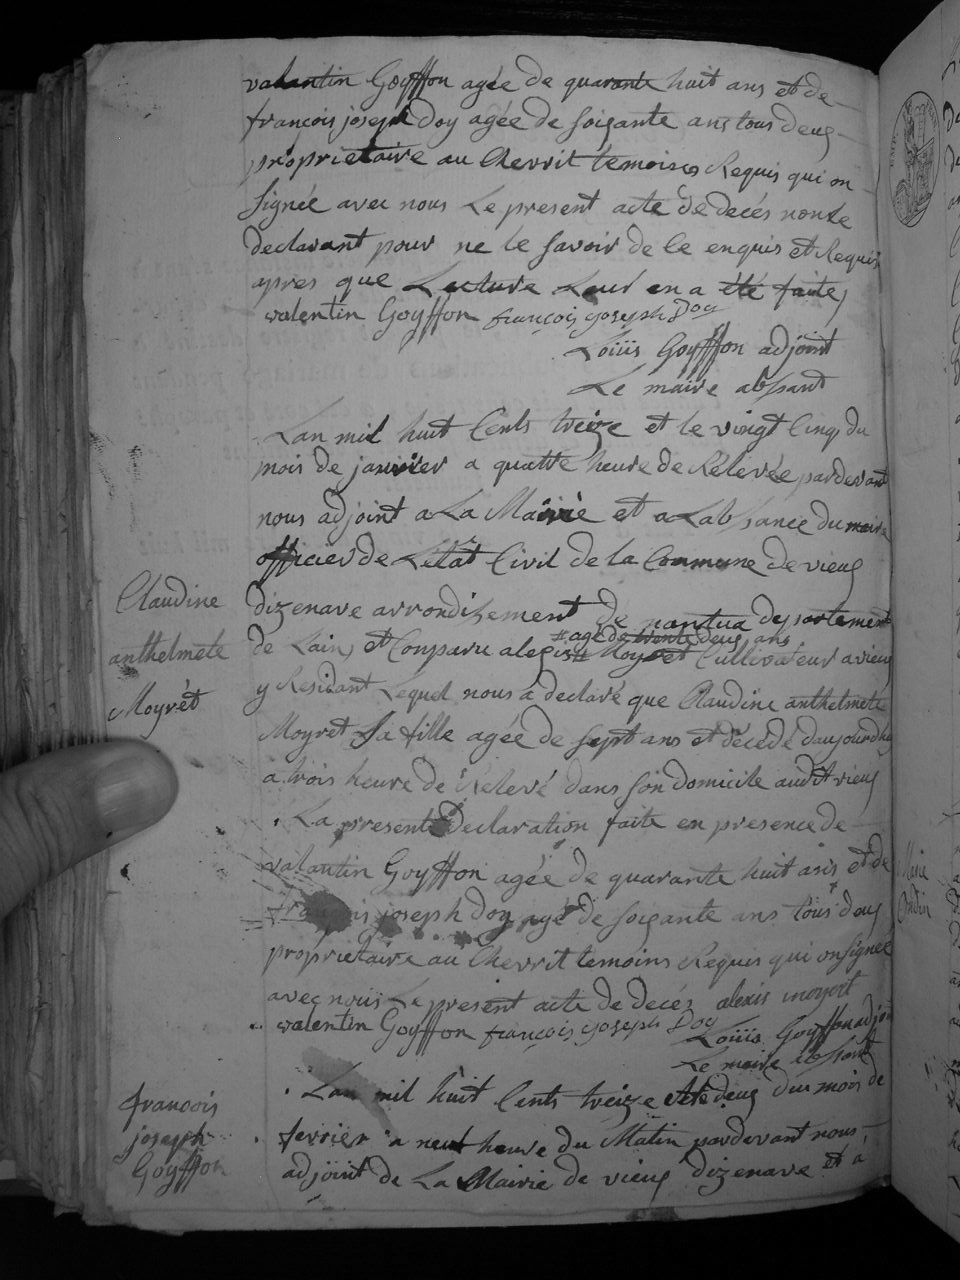 valantin Goyffon agée de quarante huit ans et de
françois joseph Doy agée de soixante ans tous deux
proprietaire au Chevrit temoins Requis qui on
signée avec nous Le present acte de decés non le
declarant pour ne le savoir de Ce enquis et Requis
apres que Lecture Leur en a été faite,
valentin Goyffon françois joseph Doy
Loüis Goyffon adjoint
Le maire absant
Lan mil huit Cents treize et le vingt Cinq du
mois de janvier a quatre heure de Relevée pardevant
nous adjoint a La Mairie et a Labsance du maire
officier de Létat Civil de la Commune de vieux
dizenave arrondissement de nantua departement
# agé de trente deux ans
de Lain, et Comparu alexis # Moyret Cultivateur a vieux
y Residant Lequel nous a declaré que Claudine anthelmete
Moyret Sa fille agée de sept ans et décédé daujourdhuy
a trois heure de Relevé dans son domicile audit vieux
La presente Declaration faite en presence de
valantin Goyffon agée de quarante huit ans et de
françois joseph Doy agé de soixante ans tous deux
proprietaire au Chevrit temoins Requis qui on signée
avec nous Le present acte de decés alexis moyret
valentin Goyffon françois joseph Doy
Loüis Goyffon adjoint
Le maire absant
Lan mil huit Cents treize et le deux du mois de
fevrier a neuf heure du Matin pardevant nous
adjoint de La Mairie de vieux dizenave et a
Claudine
anthelmete
Moyrét
francois
joseph
Goyffon
Marie